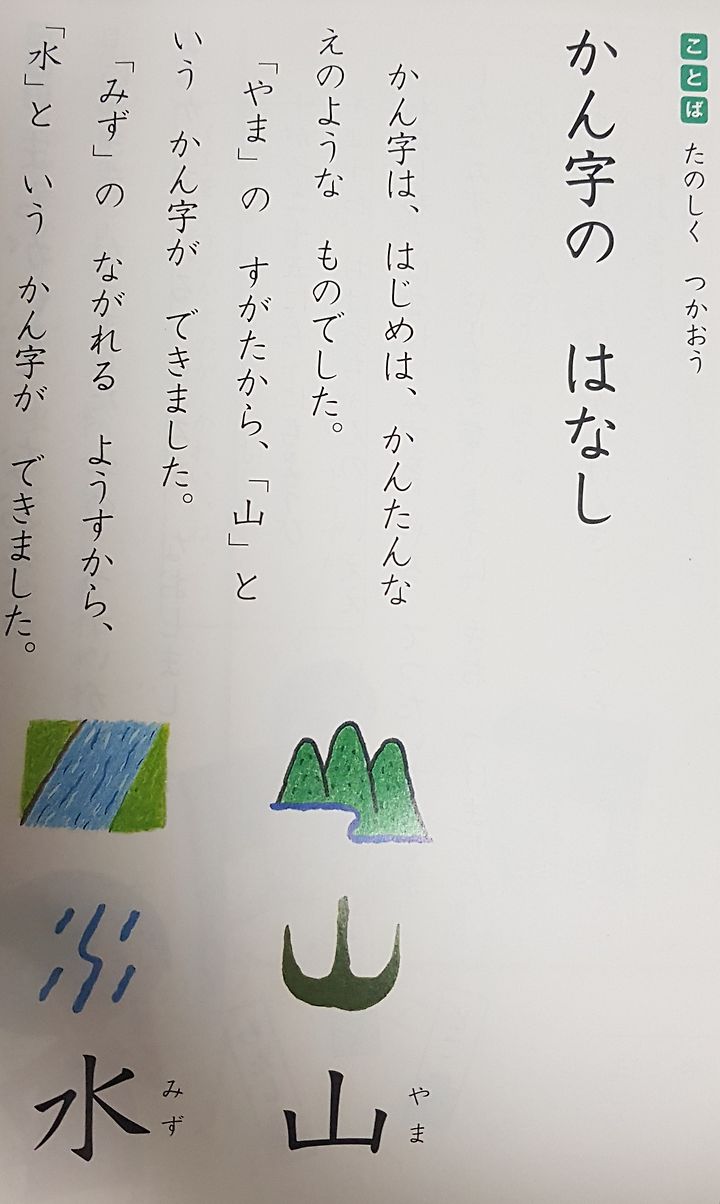 ことば
たのしく　つかおう
かん字の　はなし
かん字は、はじめは、かんたんな
えのような　ものでした。
「やま」の　すがたから、「山」と
いう　かん字が　できました。
「みず」の　ながれる　ようすから、
「水」と　いう　かん字が　できました。
やま
山
みず
水